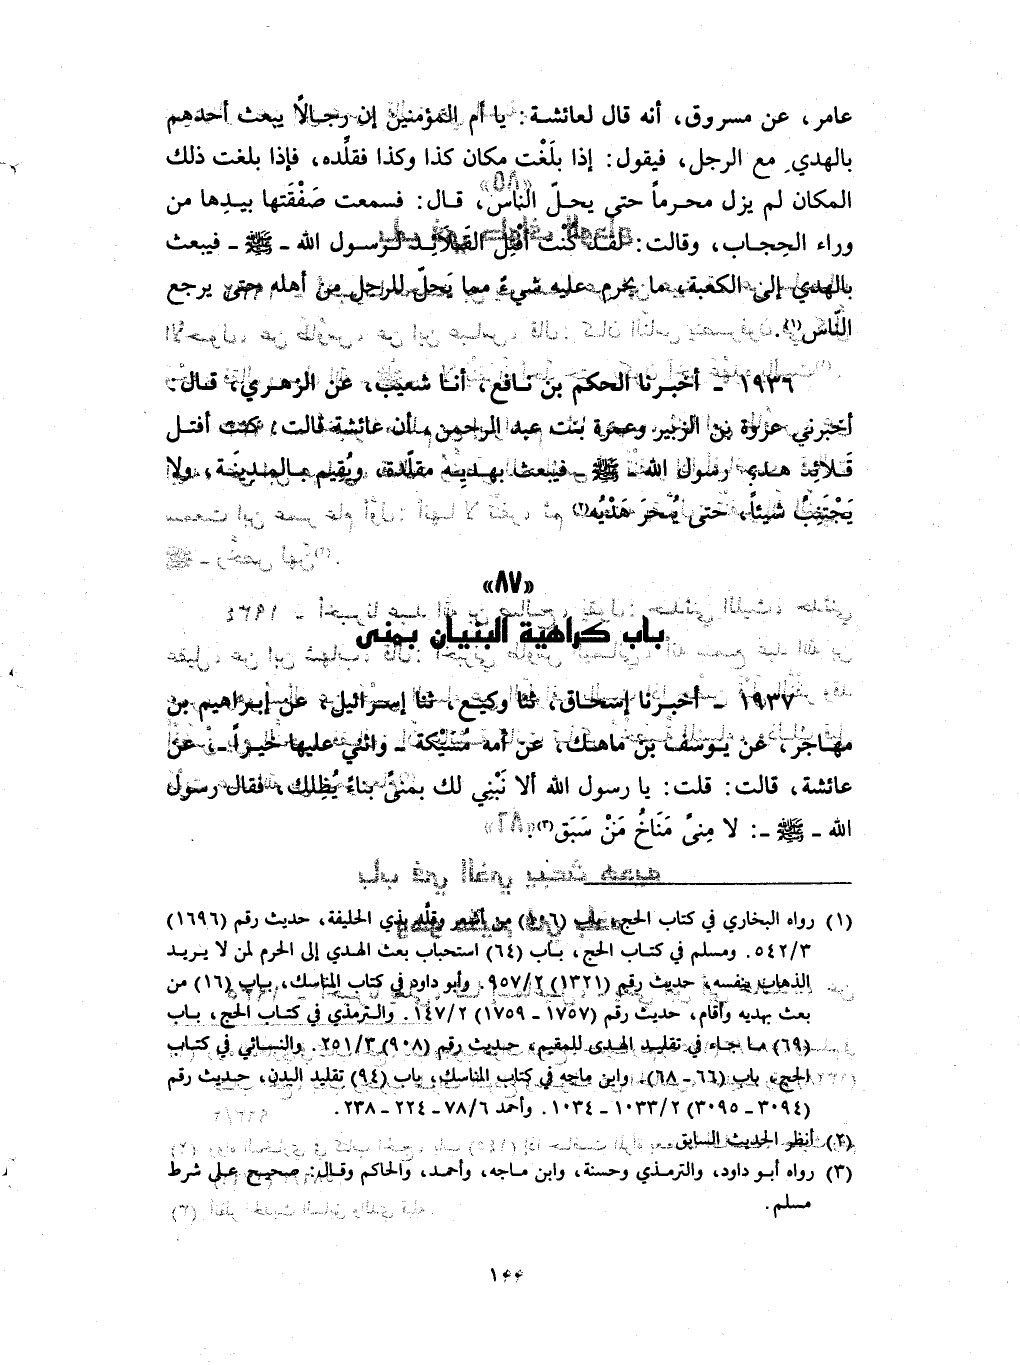 عامر، عن مسروق، أنه قال لعائشة: يا أم المؤمنين إن رجالاً يبعث أحدهم
بالهدي مع الرجل، فيقول: إذا بلَغْت مكان كذا وكذا فقلِّده، فإذا بلغت ذلك
المكان لم يزل محرماً حتى يحلّ الناس، قال: فسمعت صَفْقَتها بيدِها من
وراء الحِجاب، وقالت: لقد كُنْت أفتِل القلائِد لرسول الله ـ ﷺ ـ فيبعث
بالهدي إلى الكعبة، ما يحرم عليه شيءٌ مما يَحلّ للرجل من أهله حتى يرجع
النَّاس(١).
١٩٣٦ ـ أخبرنا الحكم بن نافع، أنا شعيب، عن الزهري، قال:
أخبرني عروة بن الزبير وعمرة بنت عبد الرحمن، أن عائشة قالت: كنت أفتل
قَلائِد هدي رسول الله ـ ﷺ ـ فيبعث بهديِه مقلَّدة، ويُقِيم بالمدِينَة، ولا
يَجْتَنِبُ شيئاً، حتى يُنْحَرَ هَدْيُه(٢)
«٨٧»
باب كراهية البنيان بمنى
١٩٣٧ ـ أخبرنا إسحاق، ثنا وكيع، ثنا إسرائيل، عن إبراهيم بن
مهاجر، عن يوسف بن ماهك، عن أمه مُسَيْكة ـ واثني عليها خيراً ـ، عن
عائشة، قالت: قلت: يا رسول الله ألا نَبْنِي لك بمنىً بناءً يُظِلك، فقال رسول
الله ـ ﷺ ـ: لا مِنىً مَنَاخُ مَنْ سَبَق(٣).
(١) رواه البخاري في كتاب الحج، باب (١٠٦) من أشعر وقلَّد بذي الحليفة، حديث رقم (١٦٩٦)
٥٤٢/٣. ومسلم في كتاب الحج، باب (٦٤) استحباب بعث الهدي إلى الحرم لمن لا يريد
الذهاب بنفسه، حديث رقم (١٣٢١) ٩٥٧/٢. وأبو داود في كتاب المناسك، باب (١٦) من
بعث بهديه وأقام، حديث رقم (١٧٥٧ ـ ١٧٥٩) ١٤٧/٢. والترمذي في كتاب الحج، باب
(٦٩) ما جاء في تقليد الهدى للمقيم، حديث رقم (٩٠٨) ٢٥١/٣. والنسائي في كتاب
الحج، باب (٦٦ ـ ٦٨). وابن ماجه في كتاب المناسك، باب (٩٤) تقليد البدن، حديث رقم
(٣٠٩٤ ـ ٣٠٩٥) ١٠٣٣/٢ ـ ١٠٣٤. وأحمد ٧٨/٦ ـ ٢٢٤ ـ ٢٣٨.
(٢) أنظر الحديث السابق
(٣) رواه أبو داود، والترمذي وحسنة، وابن ماجه، وأحمد، والحاكم وقال: صحيح على شرط
مسلم.